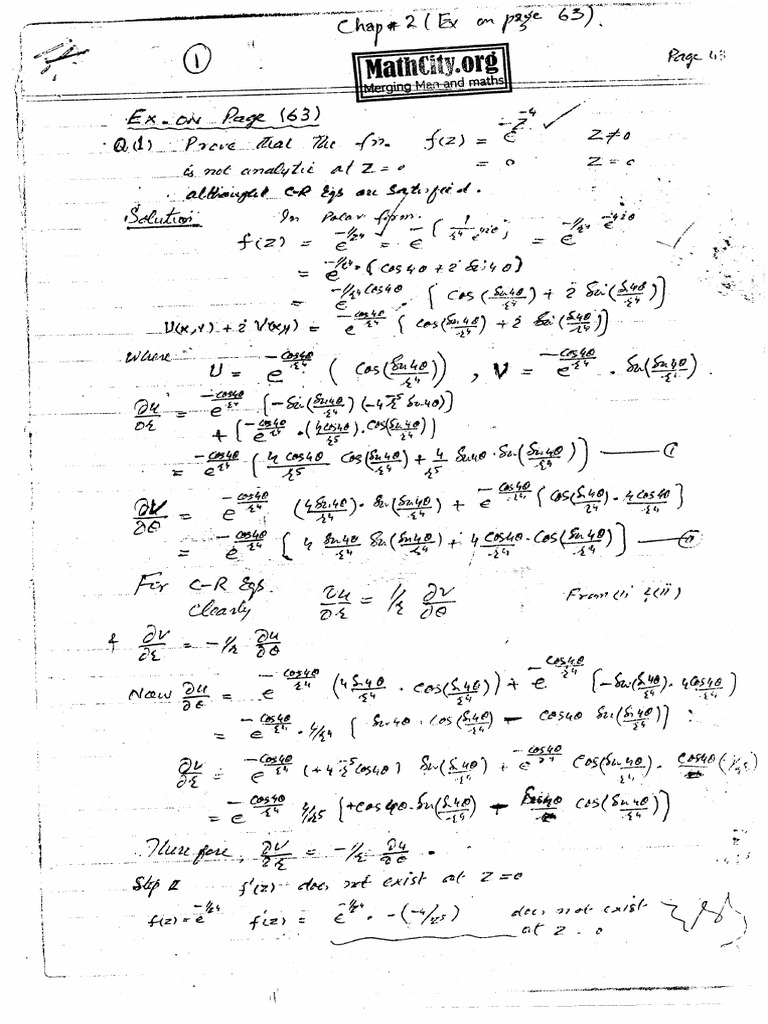 Chap # 2 (Ex on page 63).
1
MathCity.org
Merging Man and maths
Page 43
Ex. on Page (63)
Q(1) Prove that the fn. f(z) = e^{-z^{-4}} z ≠ 0
is not analytic at z = 0 = 0 z = 0
althought C-R Eqs are satisfied.
Solution In Polar form.
f(z) = e^{-1/z^4} = e^{-[1/(r^4 e^{4iθ})]} = e^{-1/r^4 e^{-4iθ}}
= e^{-1/r^4 · (cos4θ + i Sin4θ)}
= e^{-1/r^4 cos4θ} { cos(Sin4θ/r^4) + i Sin(Sin4θ/r^4) }
U(x,y) + i V(x,y) = e^{-cos4θ/r^4} { cos(Sin4θ/r^4) + i Sin(Sin4θ/r^4) }
where U = e^{-cos4θ/r^4} (cos(Sin4θ/r^4)) , V = e^{-cos4θ/r^4} . Sin(Sin4θ/r^4).
∂u/∂r = e^{-cos4θ/r^4} [-Sin(Sin4θ/r^4) (-4 r^{-5} Sin4θ)]
+ [e^{-cos4θ/r^4} · (4cos4θ/r^5) · cos(Sin4θ/r^4)]
= e^{-cos4θ/r^4} [4 cos4θ/r^5 cos(Sin4θ/r^4) + 4/r^5 Sin4θ · Sin(Sin4θ/r^4)] —— (i)
∂V/∂θ = e^{-cos4θ/r^4} (4Sin4θ/r^4) · Sin(Sin4θ/r^4) + e^{-cos4θ/r^4} {cos(Sin4θ/r^4) · 4cos4θ/r^4}
= e^{-cos4θ/r^4} [4 Sin4θ/r^4 Sin(Sin4θ/r^4) + 4cos4θ/r^4 · cos(Sin4θ/r^4)] —— (ii)
For C-R Eqs.
Clearly ∂u/∂r = 1/r ∂v/∂θ From (i) & (ii)
& ∂v/∂r = -1/r ∂u/∂θ
Now ∂u/∂θ = e^{-cos4θ/r^4} (4Sin4θ/r^4 · cos(Sin4θ/r^4)) + e^{-cos4θ/r^4} [-Sin(Sin4θ/r^4) · 4cos4θ/r^4]
= e^{-cos4θ/r^4} · 4/r^4 [Sin4θ · cos(Sin4θ/r^4) - cos4θ Sin(Sin4θ/r^4)]
∂v/∂r = e^{-cos4θ/r^4} (+4 r^{-5} cos4θ) Sin(Sin4θ/r^4) + e^{-cos4θ/r^4} cos(Sin4θ/r^4) ·
= e^{-cos4θ/r^4} 4/r^5 [+cos4θ · Sin(Sin4θ/r^4) - Sin4θ cos(Sin4θ/r^4)]
Therefore, ∂v/∂r = -1/r ∂u/∂θ .
Step II f'(z) does not exist at z = 0
f(z) = e^{-1/z^4} f'(z) = e^{-1/z^4} · -(-4/z^5) does not exist
at z = 0